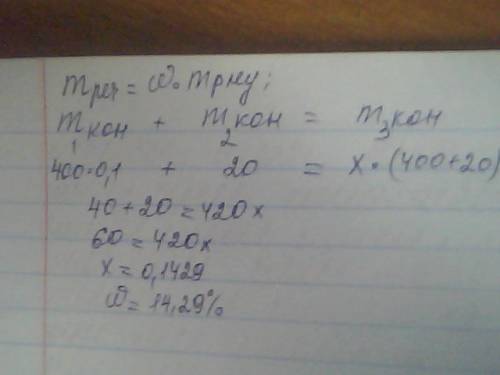 m реч = ω · m рну;
m₁ кон + m₂ кон = m₃ кон
400·0,1 + 20 = x · (400+20)
40+20=420x
60=420x
x=0,1429
ω=14,29%